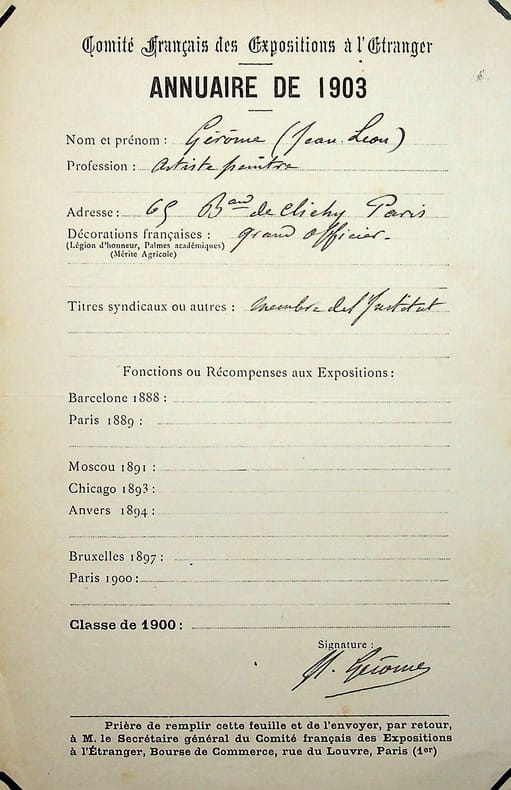 Comité Français des Expositions à l'Etranger
ANNUAIRE DE 1903
Nom et prénom : Gérôme (Jean Léon)
Profession : artiste peintre
Adresse : 65 Bard de Clichy Paris
Décorations françaises : grand officier.
(Légion d'honneur, Palmes académiques)
(Mérite Agricole)
Titres syndicaux ou autres : membre de l'Institut
Fonctions ou Récompenses aux Expositions :
Barcelone 1888 :
Paris 1889 :
Moscou 1891 :
Chicago 1893 :
Anvers 1894 :
Bruxelles 1897 :
Paris 1900 :
Classe de 1900 :
Signature :
Gérome
Prière de remplir cette feuille et de l'envoyer, par retour,
à M. le Secrétaire général du Comité français des Expositions
à l'Étranger, Bourse de Commerce, rue du Louvre, Paris (1er)